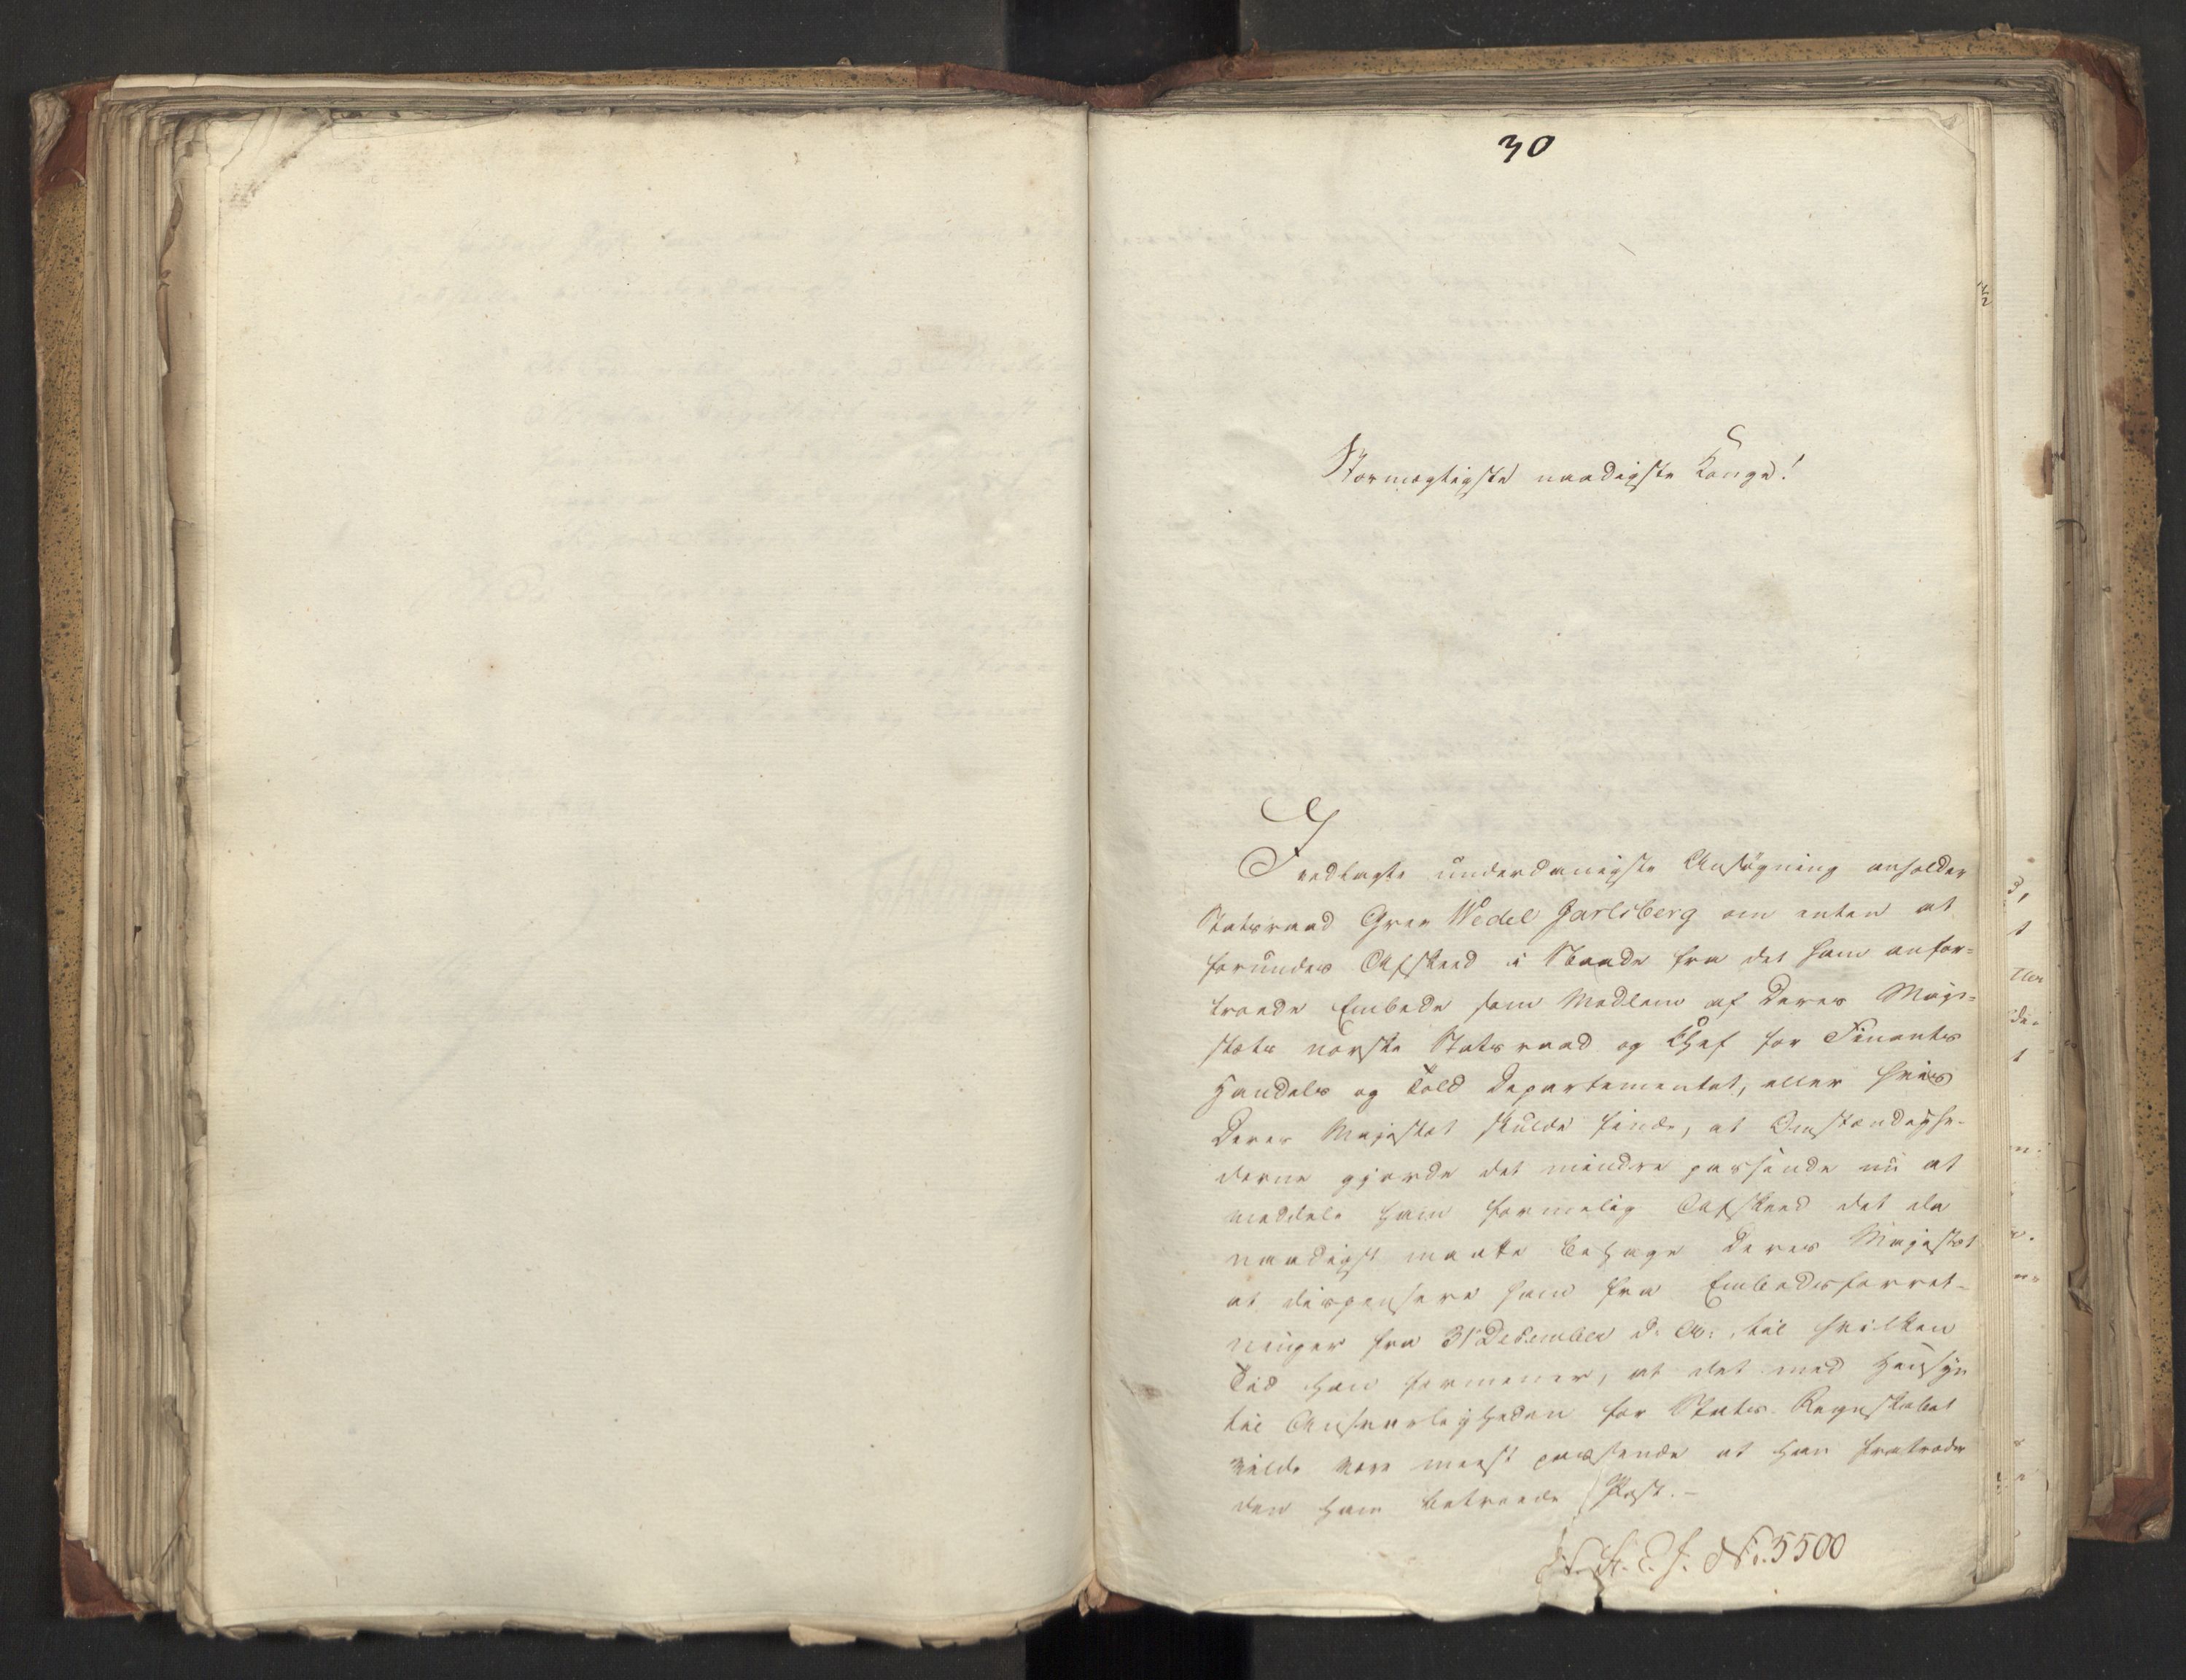 30
Stormægtigste naadigste Konge!
I vedlagte underdanigste Ansøgning anholder
Statsraad Grev Wedel Jarlsberg om enten at
forundes Afskeed i Naade fra det ham anfor=
troede Embede som Medlem af Deres Maje=
stæts norske Statsraad og Chef for Finants
Handels og Told Departementet, eller hvis
Deres Majestæt skulde finde, at Omstændighe-
derne gjorde det mindre passende nu at
meddele ham formelig Afskeed det da
naadigst maatte behage Deres Majestæt
at dispensere ham fra Embedsforret-
ninger fra 31 December d. A., til hvilken
Tid han formener, at det med Hensyn
til Ansvarligheden for Stats-Regnskabet
vilde være meest passende at han fratræder
den ham betroede Post.-
No. 5500